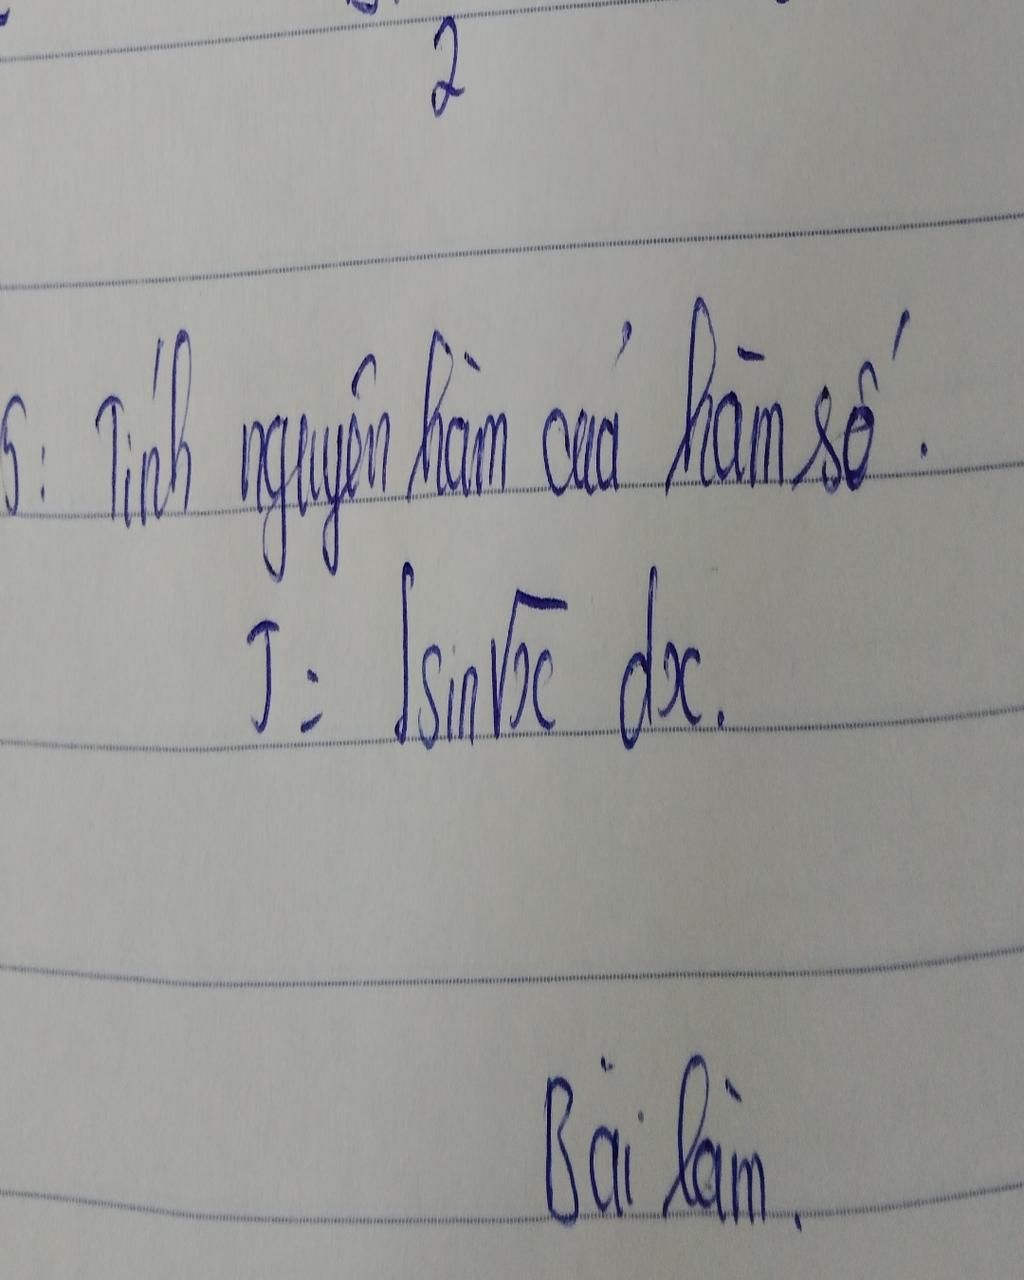 2
5: Tính nguyên hàm của hàm số.
J = ∫sin√x dx.
Bài làm.